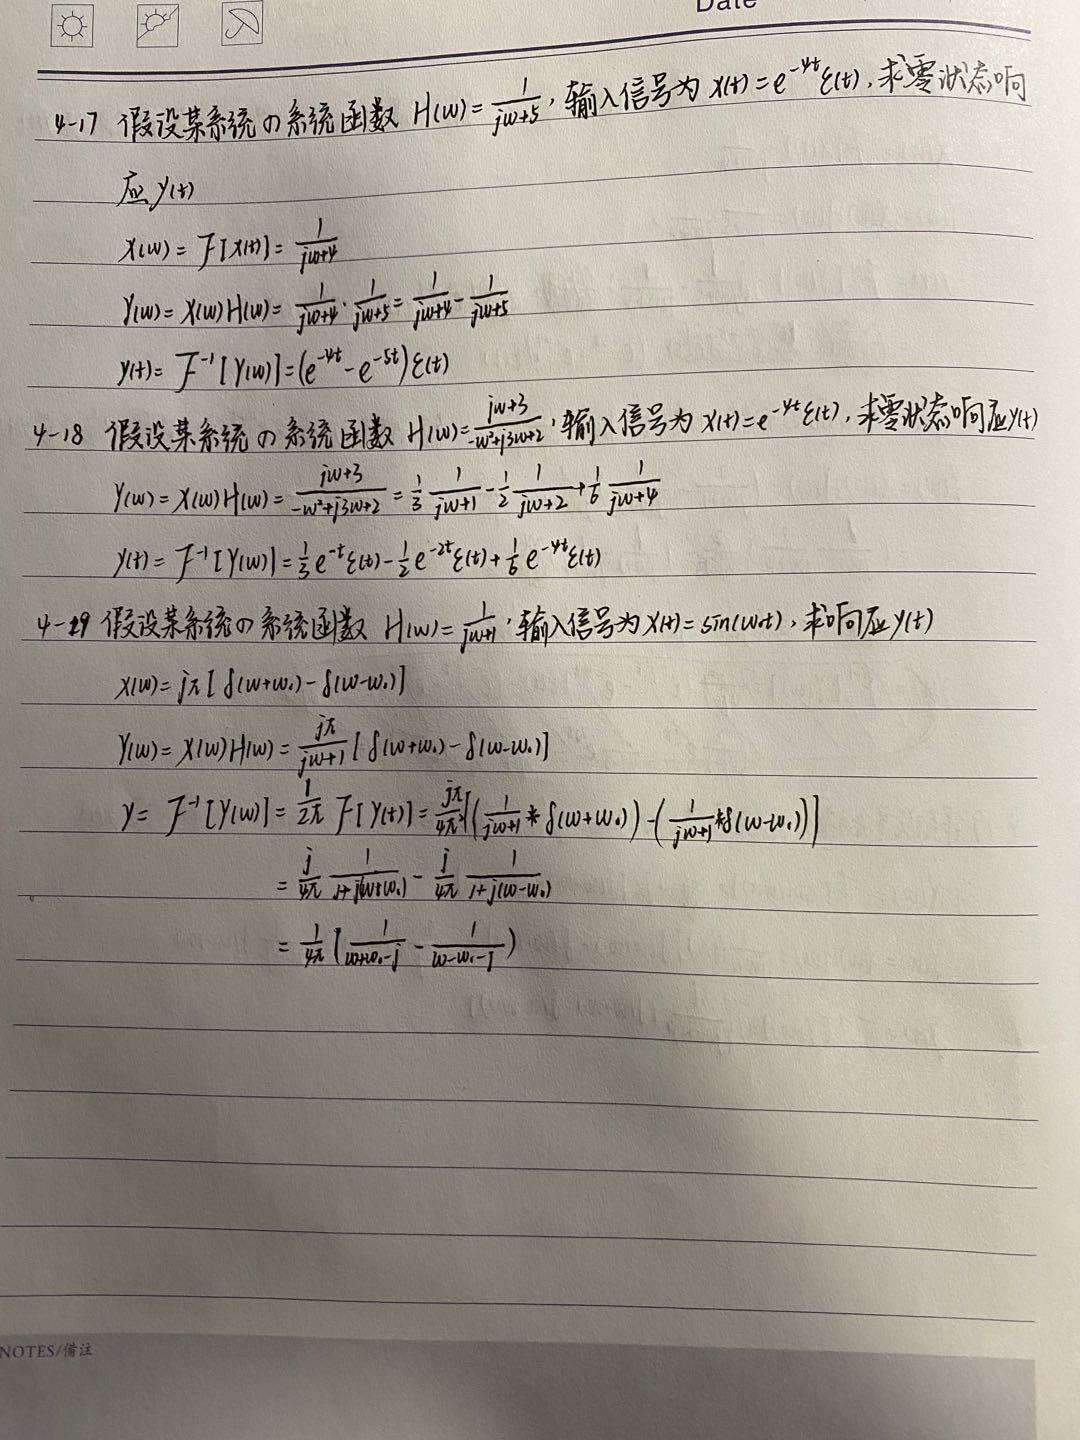 Date
4-17 假设某系统の系统函数 H(w)=1/(jw+5), 输入信号为 x(t)=e^{-4t}ε(t), 求零状态响
应 y(t)
X(w)=F[x(t)]=1/(jw+4)
Y(w)=X(w)H(w)=1/(jw+4)·1/(jw+5)=1/(jw+4)-1/(jw+5)
y(t)=F^{-1}[Y(w)]=(e^{-4t}-e^{-5t})ε(t)
4-18 假设某系统の系统函数 H(w)=(jw+3)/(-w²+j3w+2), 输入信号为 x(t)=e^{-4t}ε(t), 求零状态响应y(t)
Y(w)=X(w)H(w)=(jw+3)/(-w²+j3w+2)=1/3 1/(jw+1)-1/2 1/(jw+2)+1/6 1/(jw+4)
y(t)=F^{-1}[Y(w)]=1/3 e^{-t}ε(t)-1/2 e^{-2t}ε(t)+1/6 e^{-4t}ε(t)
4-19 假设某系统の系统函数 H(w)=1/(jw+1), 输入信号为x(t)=sin(w₀t), 求响应y(t)
X(w)=jπ[δ(w+w₀)-δ(w-w₀)]
Y(w)=X(w)H(w)=jπ/(jw+1)[δ(w+w₀)-δ(w-w₀)]
y=F^{-1}[Y(w)]=1/2π F[Y(t)]=jπ/4π²[(1/(jw+1)*δ(w+w₀))-(1/(jw+1)*δ(w-w₀))]
=j/4π 1/(1+j(w+w₀))-j/4π 1/(1+j(w-w₀))
=1/4π(1/(w+w₀-j)-1/(w-w₀-j))
NOTES/备注